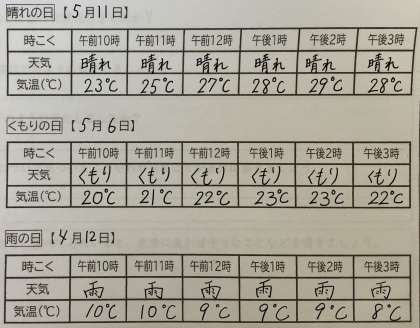 晴れの日【5月11日】
時こく 午前10時 午前11時 午前12時 午後1時 午後2時 午後3時
天気 晴れ 晴れ 晴れ 晴れ 晴れ 晴れ
気温(℃) 23℃ 25℃ 27℃ 28℃ 29℃ 28℃
くもりの日【5月6日】
時こく 午前10時 午前11時 午前12時 午後1時 午後2時 午後3時
天気 くもり くもり くもり くもり くもり くもり
気温(℃) 20℃ 21℃ 22℃ 23℃ 23℃ 22℃
雨の日【4月12日】
時こく 午前10時 午前11時 午前12時 午後1時 午後2時 午後3時
天気 雨 雨 雨 雨 雨 雨
気温(℃) 10℃ 10℃ 9℃ 9℃ 9℃ 8℃